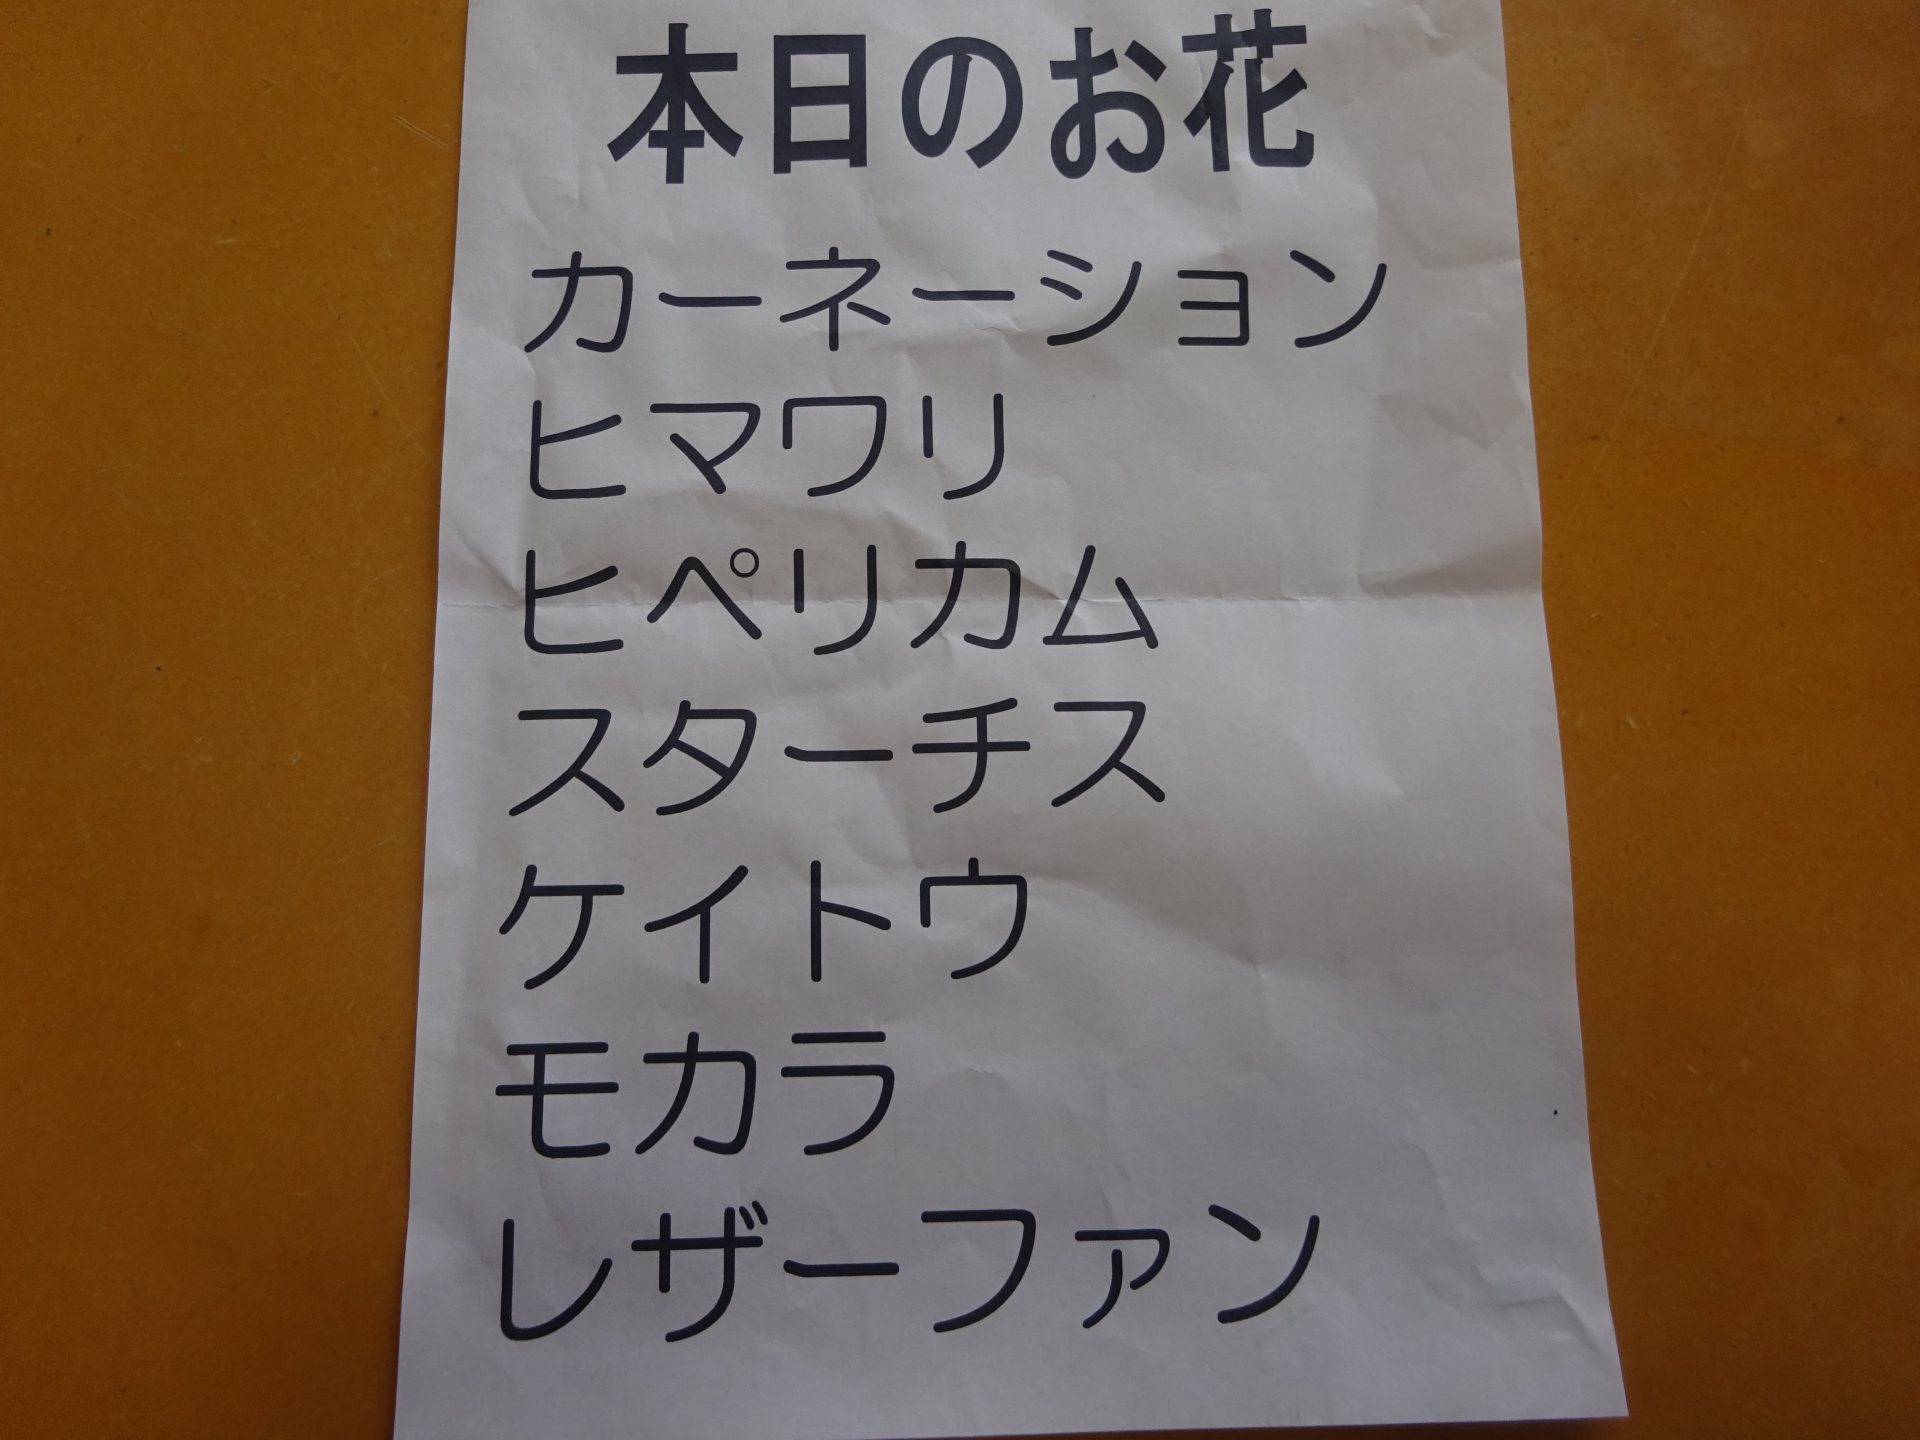 本日のお花
カーネーション
ヒマワリ
ヒペリカム
スターチス
ケイトウ
モカラ
レザーファン